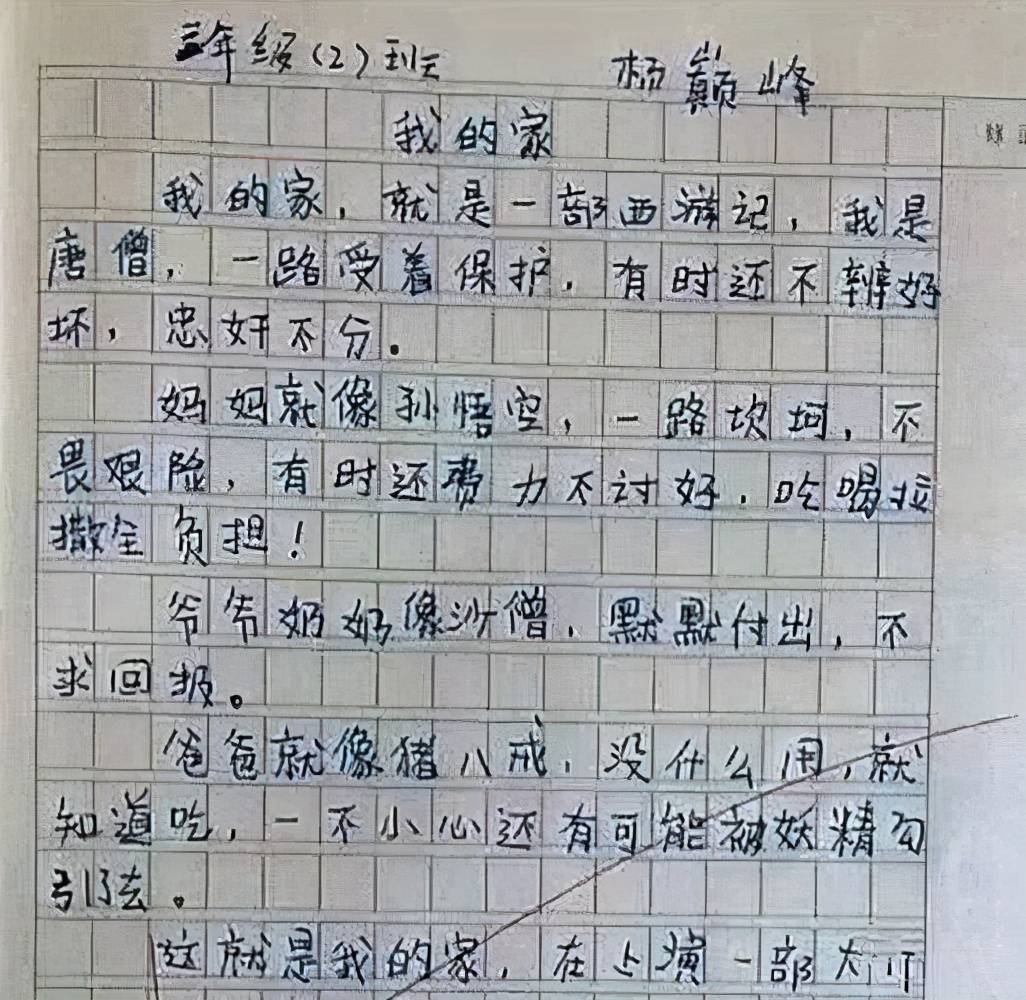 三年级(2)班 杨巅峰
我的家
我的家，就是一部西游记，我是
唐僧，一路受着保护，有时还不辨好
坏，忠奸不分。
妈妈就像孙悟空，一路坎坷，不
畏艰险，有时还费力不讨好，吃喝拉
撒全负担！
爷爷奶奶像沙僧，默默付出，不
求回报。
爸爸就像猪八戒，没什么用，就
知道吃，一不小心还有可能被妖精勾
引了去。
这就是我的家，在上演一部大